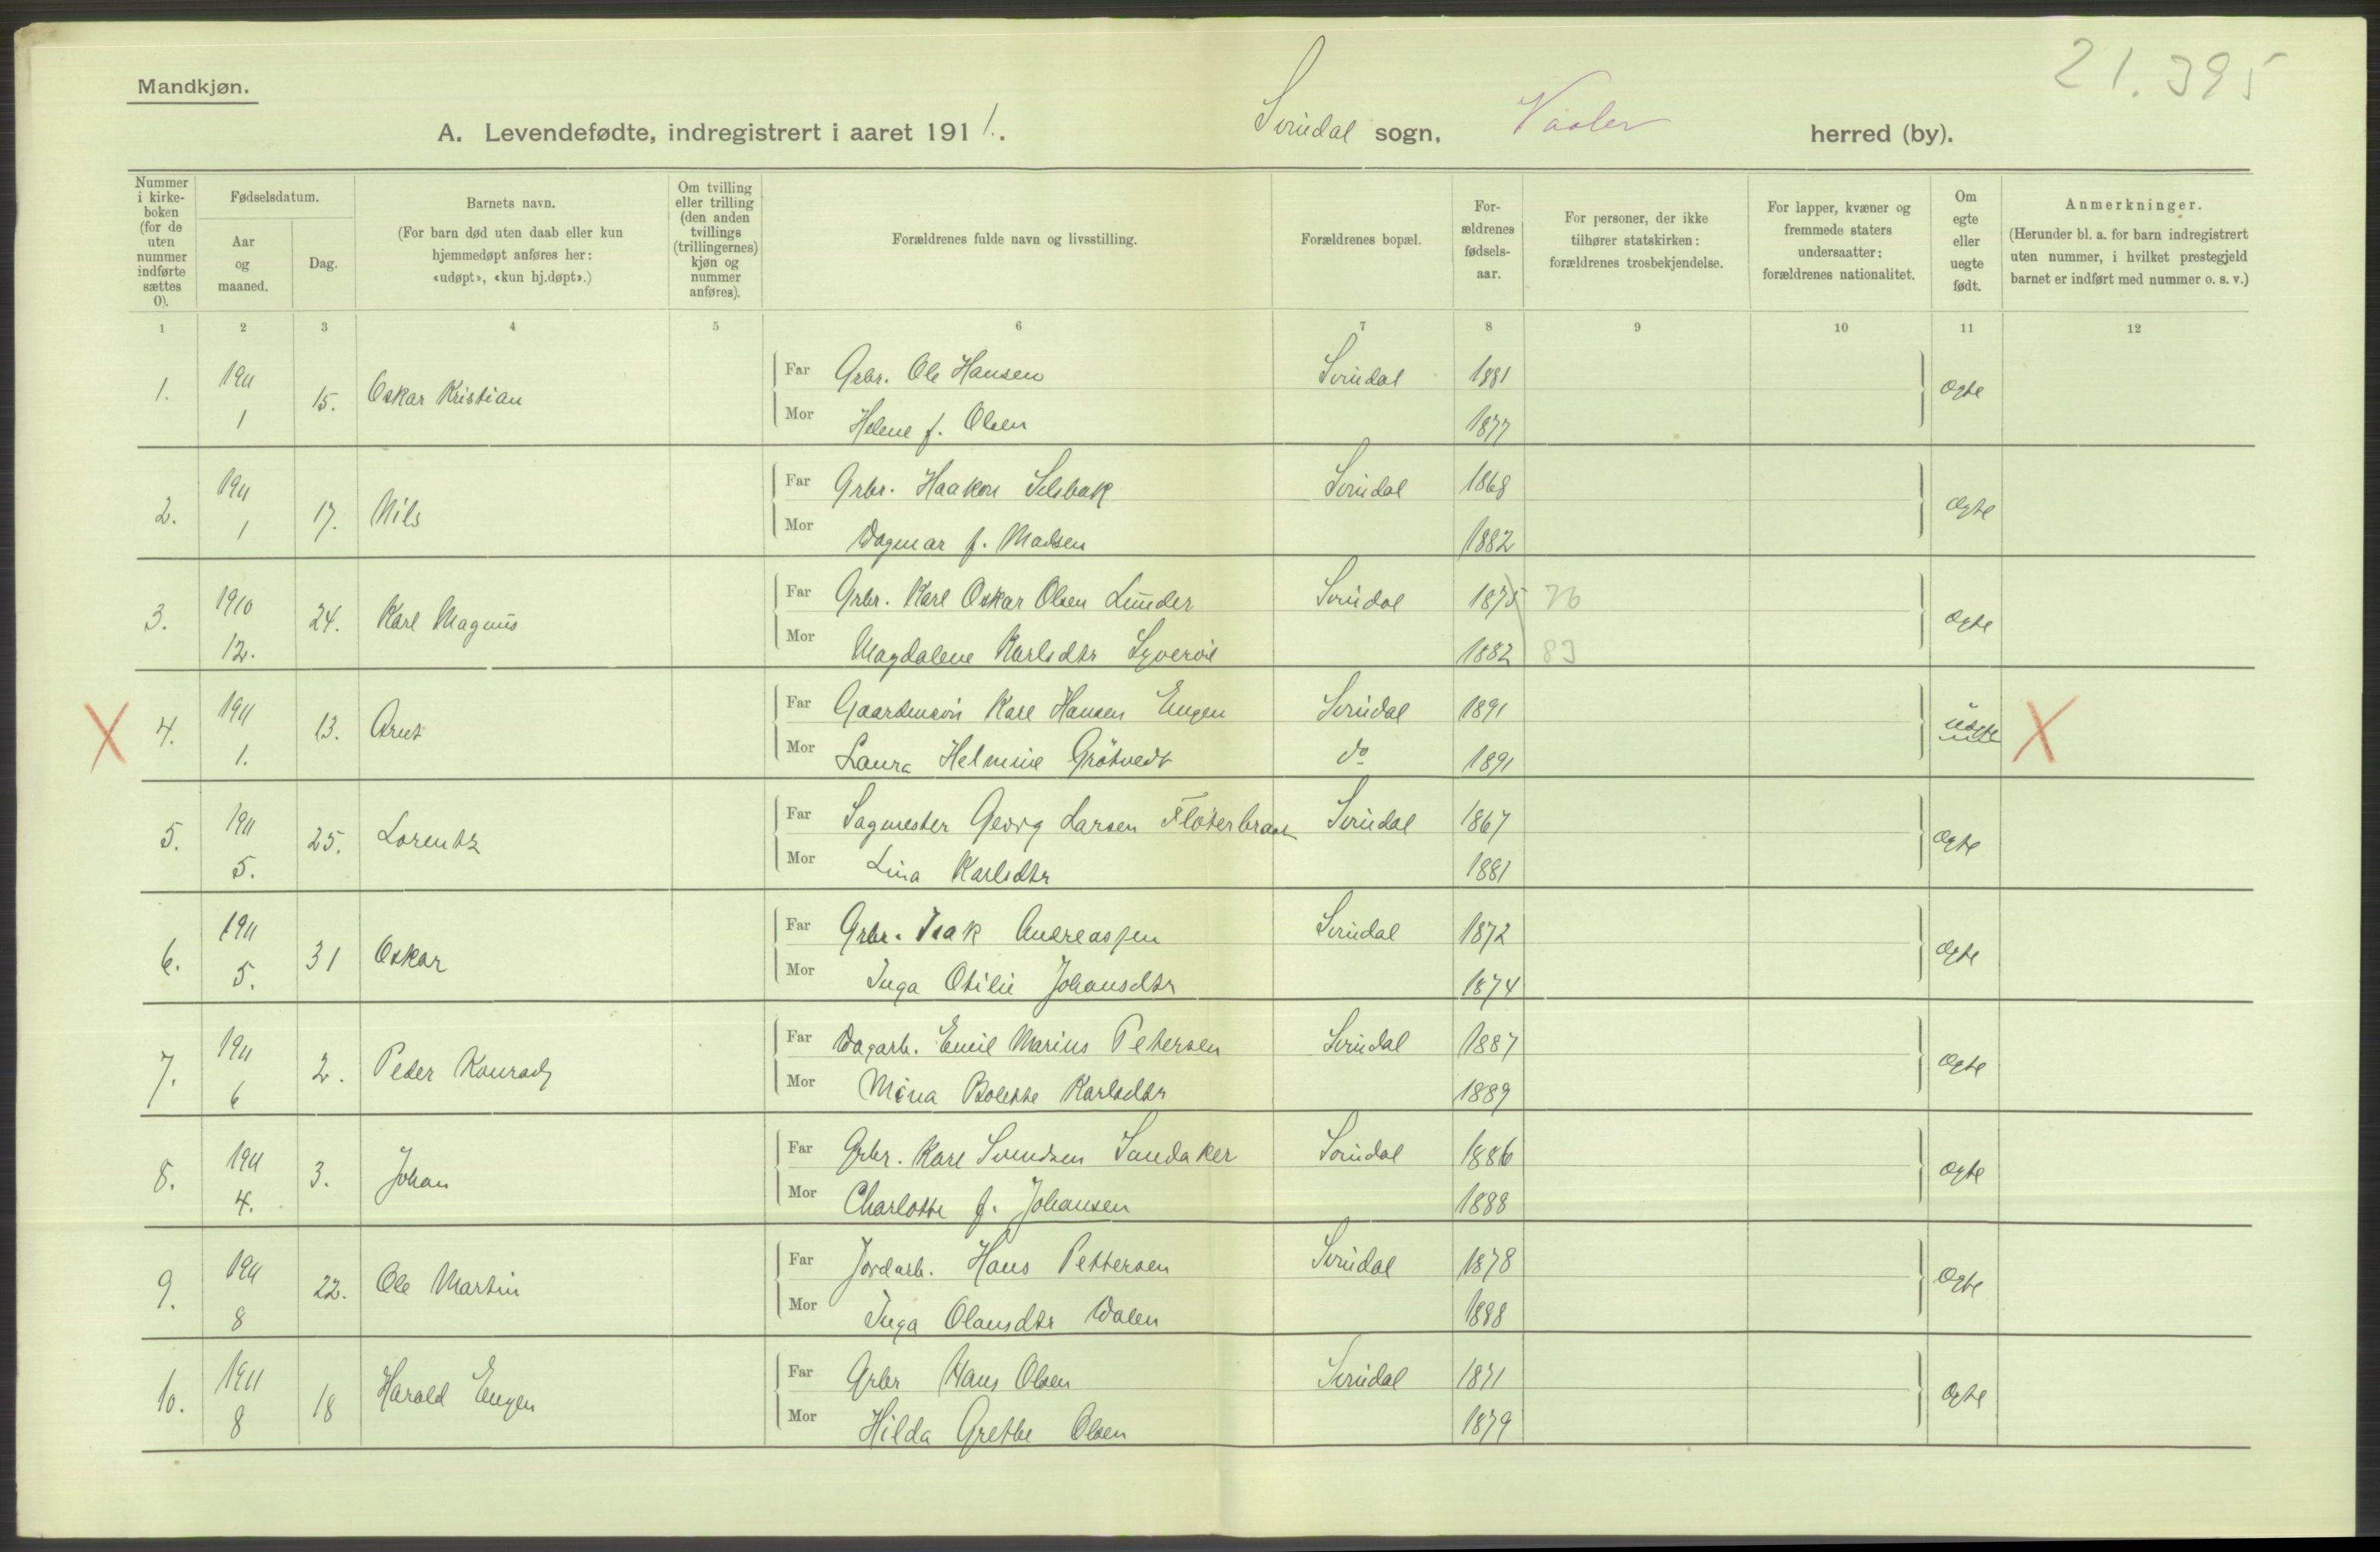 21.395
Mandkjøn.
A. Levendefødte, indregistrert i aaret 1911. Svindal sogn, Vaaler herred (by).
Nummer i kirkeboken (for de uten nummer indførte sættes 0).
Fødselsdatum.
Aar og maaned.
Dag.
Barnets navn.
(For barn død uten daab eller kun hjemmedøpt anføres her: «udøpt», «kun hj.døpt».)
Om tvilling eller trilling (den anden tvillings (trillingernes) kjøn og nummer anføres).
Forældrenes fulde navn og livsstilling.
Forældrenes bopæl.
Forældrenes fødselsaar.
For personer, der ikke tilhører statskirken: forældrenes trosbekjendelse.
For lapper, kvæner og fremmede staters undersaatter: forældrenes nationalitet.
Om egte eller uegte født.
Anmerkninger.
(Herunder bl. a. for barn indregistrert uten nummer, i hvilket prestegjeld barnet er indført med nummer o. s. v.)
1 2 3 4 5 6 7 8 9 10 11 12
1. 1911 1 15. Oskar Kristian Far Grbr. Ole Hansen Svindal 1881 Ægte
Mor Helene f. Olsen 1877
2. 1911 1 17. Nils Far Grbr. Haakon Selsbak Svindal 1868 Ægte
Mor Dagmar f. Madsen 1882
3. 1910 12. 24. Karl Magnus Far Grbr. Karl Oskar Olsen Lunder Svindal 1875 76 Ægte
Mor Magdalene Karlsdtr 1882 83
X 4. 1911 1. 13. Arnt Far Karl Hansen Engen Svindal 1891 uægte X
Mor Laura Helmine Grötvedt do 1891
5. 1911 5. 25. Lorentz Far Sagmester Georg Larsen Svindal 1867 Ægte
Mor Lina Karlsdtr 1881
6. 1911 5. 31 Oskar Far Grbr. Isak Andreassen Svindal 1872 Ægte
Mor Inga Otilie Johansdtr 1874
7. 1911 6 2. Peder Konrad Far Dagarb. Emil Marius Petersen Svindal 1887 Ægte
Mor Mina Bolette Karlsdtr 1889
8. 1911 4. 3. Johan Far Grbr. Karl Svendsen Sandaker Svindal 1886 Ægte
Mor Charlotte f. Johansen 1888
9. 1911 8 22. Ole Martin Far Jordarb. Hans Pettersen Svindal 1878 Ægte
Mor Inga Olausdtr Dalen 1888
10. 1911 8 18 Harald Eugen Far Grbr Hans Olsen Svindal 1871 Ægte
Mor Hilda Grethe Olsen 1879